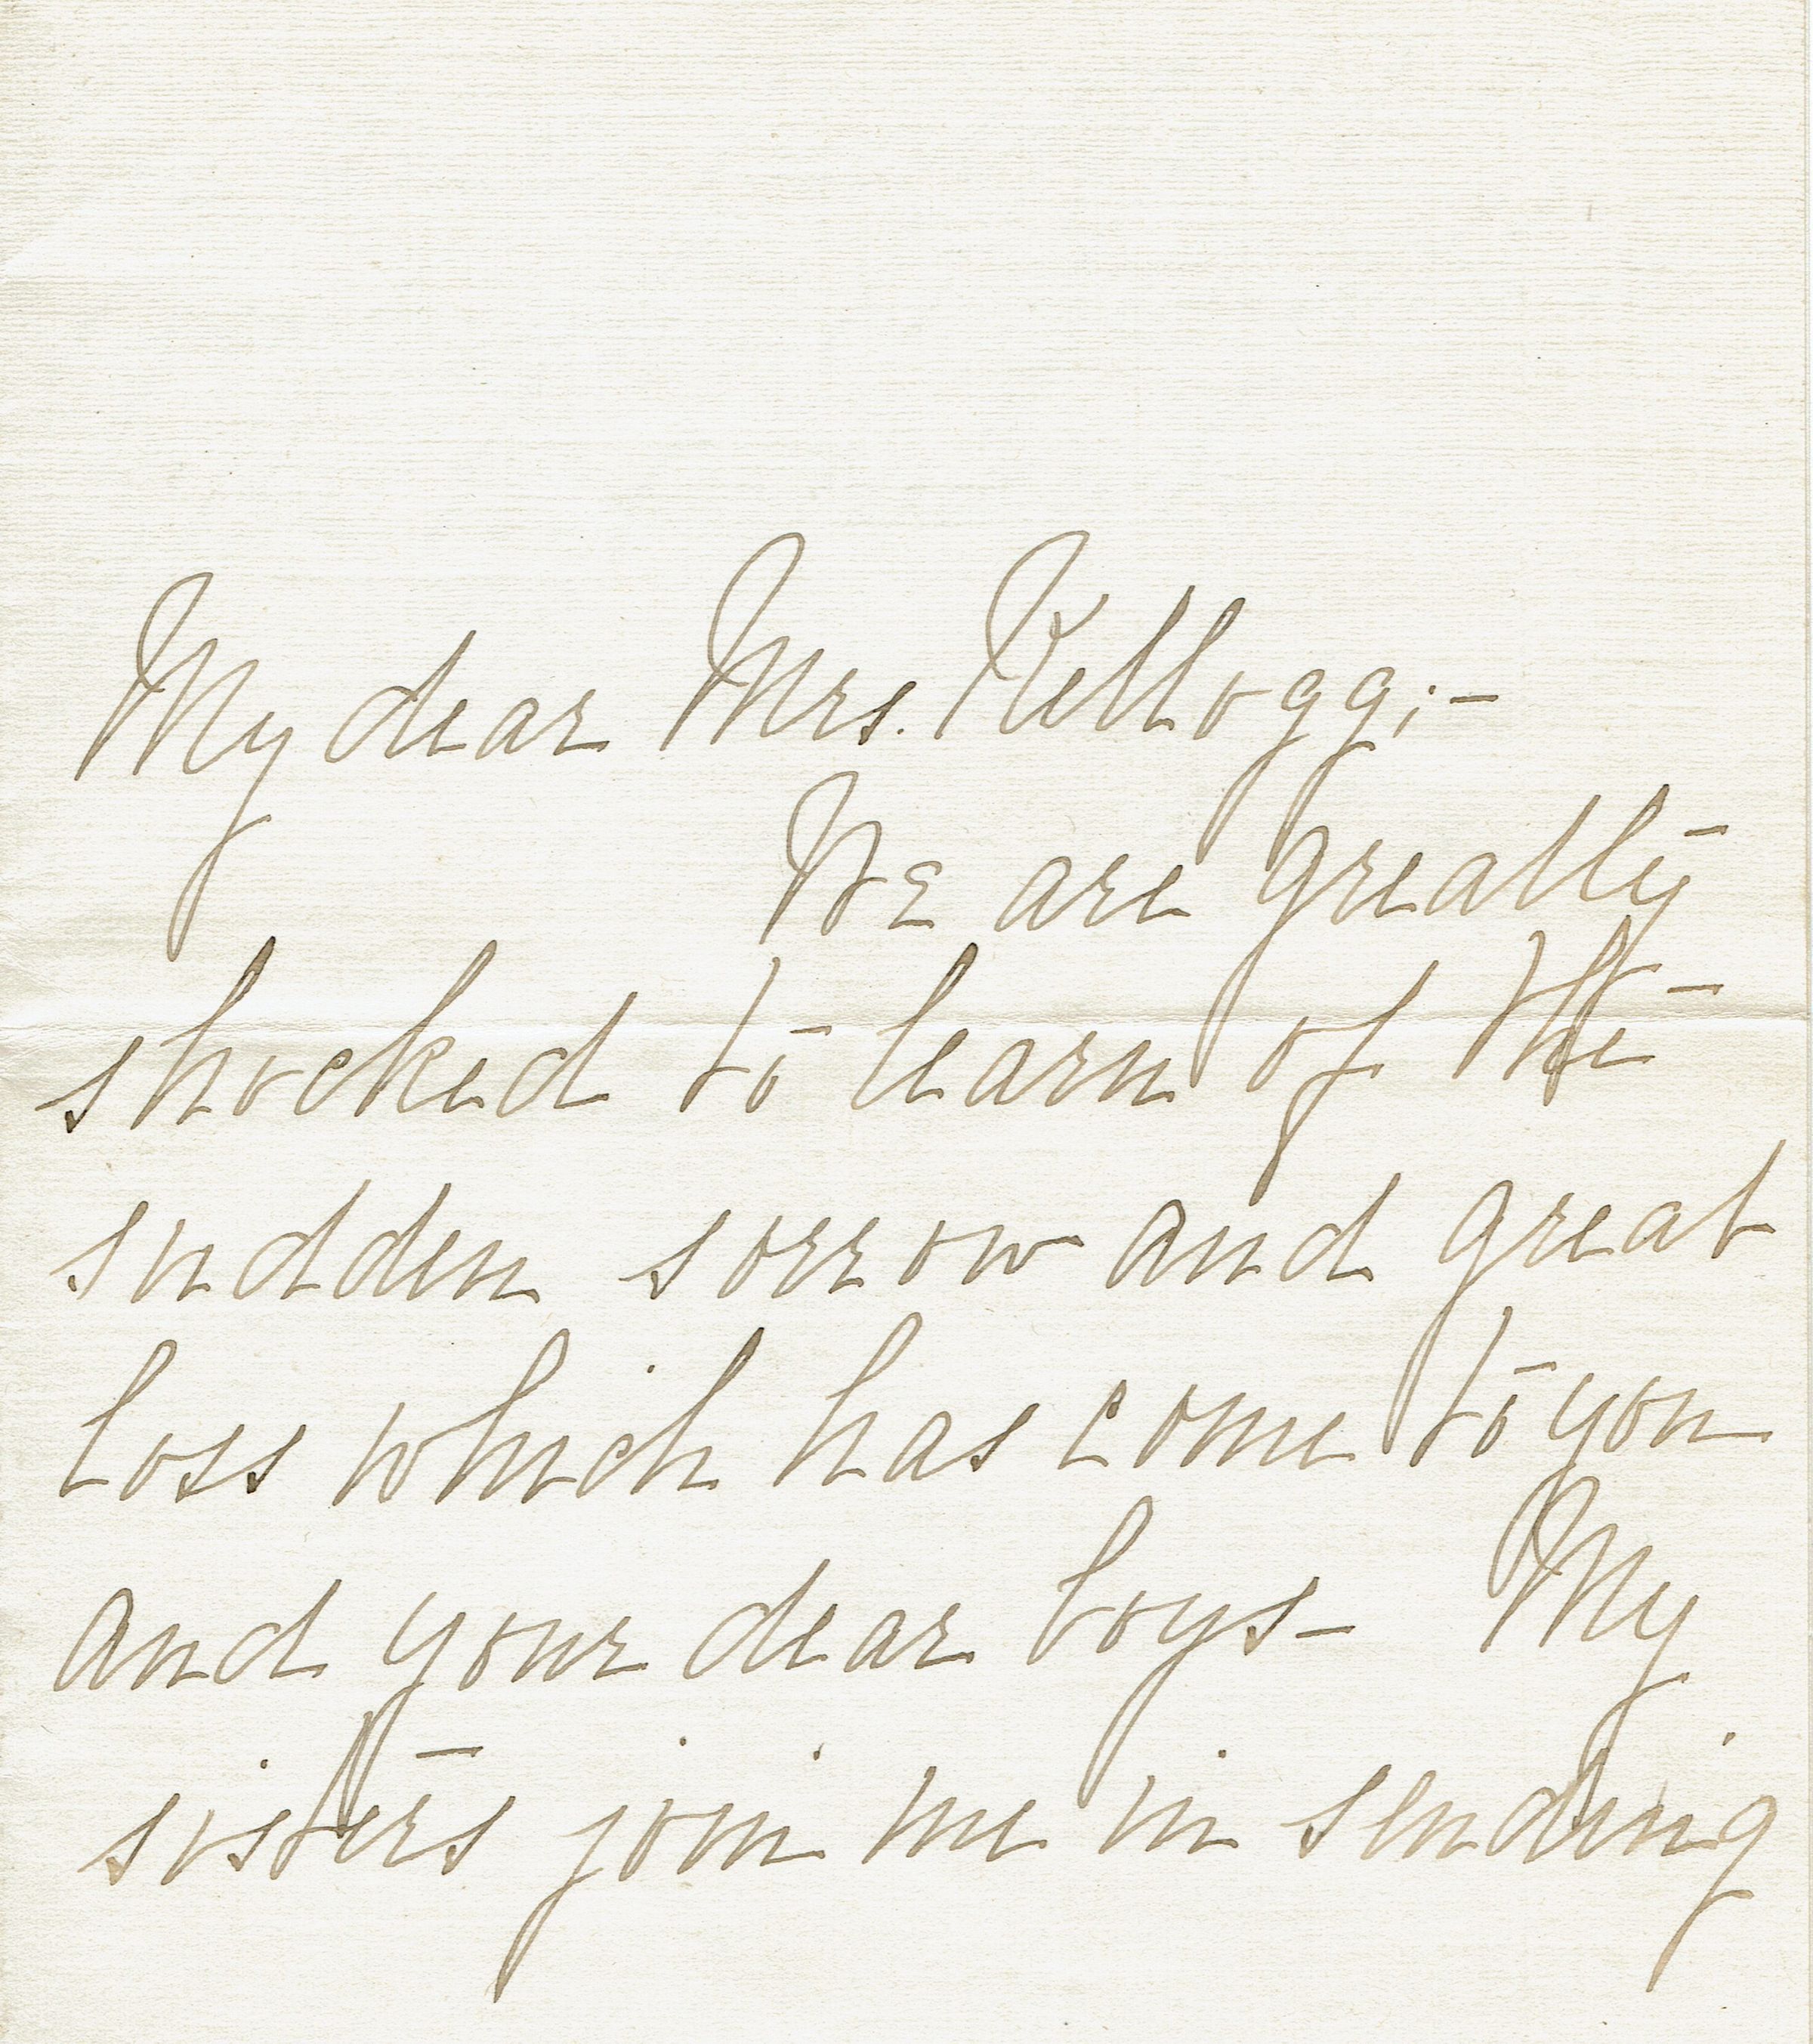 My dear Mrs. Kellogg;-
We are greatly
shocked to learn of the
sudden sorrow and great
loss which has come to you
and your dear boys- My
sisters join me in sending